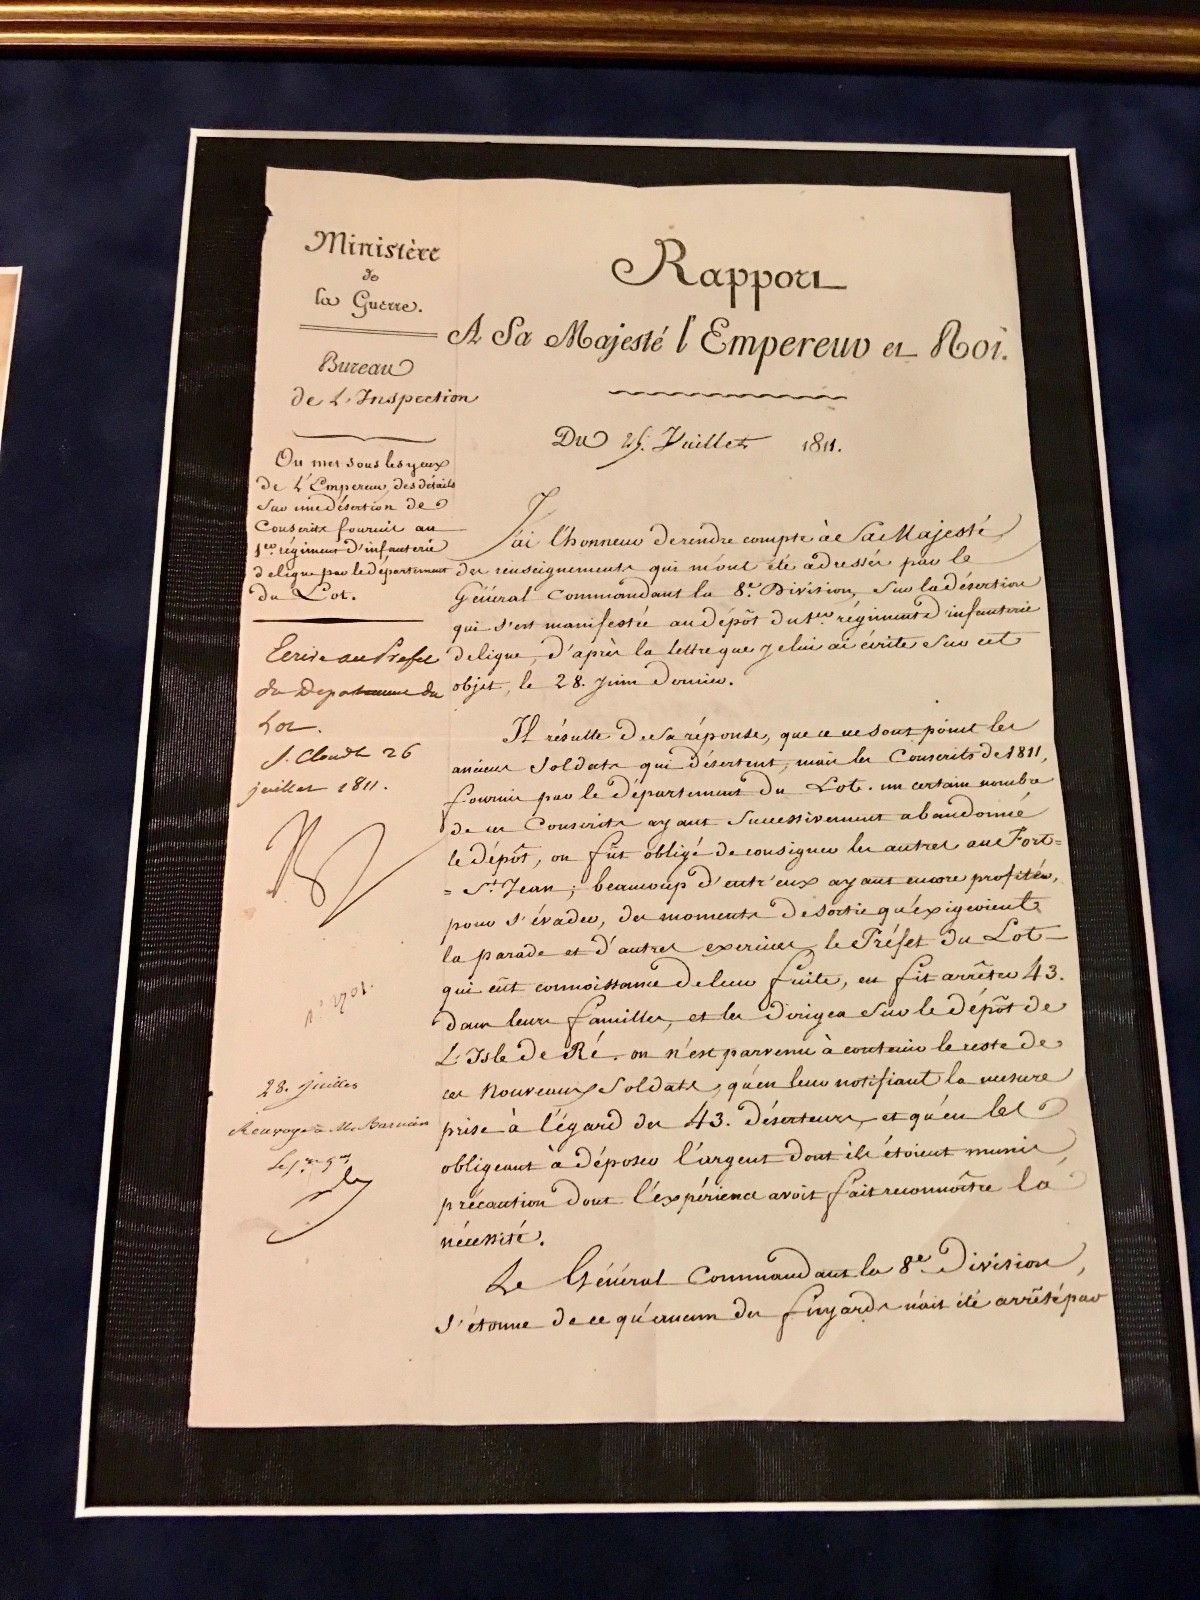 Ministère
de
la Guerre.
Bureau
de L'Inspection
On met sous les yeux
de L'Empereur, des détails
sur une désertion de
Conscrits fournis au
1er régiment d'infanterie
de ligne par le département
du Lot.
Ecrire au Prefet
du Departement du
Lot.
St. Cloud 26
juillet 1811.
N° 1701.
28. juillet
Renvoyé à Mr. Barnier
Rapport
A Sa Majesté l'Empereur et Roi.
Du 25. Juillet 1811.
J'ai l'honneur de rendre compte à Sa Majesté
des renseignements qui m'ont été adressés par le
Général Commandant la 8e. Division, sur la désertion
qui s'est manifestée au dépôt du 1er régiment d'infanterie
de ligne, d'après la lettre que je lui ai écrite sur cet
objet, le 28. Juin dernier.
Il résulte de sa réponse, que ce ne sont point les
anciens soldats qui désertent, mais les Conscrits de 1811,
fournis par le département du Lot. un certain nombre
de ces Conscrits ayant successivement abandonné
le dépôt, on fût obligé de consigner les autres au Fort=
= St. Jean; beaucoup d'entr'eux ayant encore profité,
pour s'évader, des moments de sortie qu'exigeoient
la parade et d'autres exercices, le Préfet du Lot
qui eût connoissance de leur fuite, en fit arrêter 43.
dans leurs familles, et les dirigea sur le dépôt de
L'Isle de Ré. on n'est parvenu à contenir le reste de
ces nouveaux soldats, qu'en leur notifiant la mesure
prise à l'égard des 43. déserteurs, et qu'en les
obligeant à déposer l'argent dont ils étoient munis,
précaution dont l'expérience avoit fait reconnoître la
nécessité.
Le Général Commandant la 8e. Division,
s'étonne de ce qu'aucun des fuyards n'ait été arrêté par